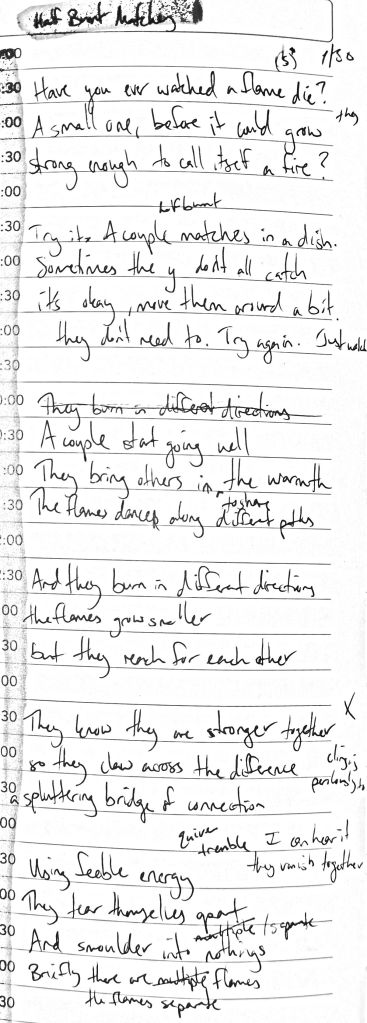 Half Burnt Matches
(s) 1/30
:30 Have you ever watched a flame die?
:00 A small one, before it could grow they
:30 strong enough to call itself a fire?
:00
:30 Try it. A couple matches in a dish.
:00 Sometimes they don't all catch
:30 it's okay, move them around a bit.
:00 they don't need to. Try again. Just watch
:30
:00 They burn in different directions
:30 A couple start going well
:00 They bring others in, the warmth
to share
:30 The flames dances along different paths
:00
:30 And they burn in different directions
00 the flames grow smaller
30 but they reach for each other
00
30 They know they are stronger together X
00 so they claw across the difference clinging
30 a spluttering bridge of connection
00 quiver tremble I can hear it
they vanish together
30 Using feeble energy
00 They tear themselves apart
multiple / separate
30 And smoulder into nothings
00 Briefly there are multiple flames
30 the flames separate